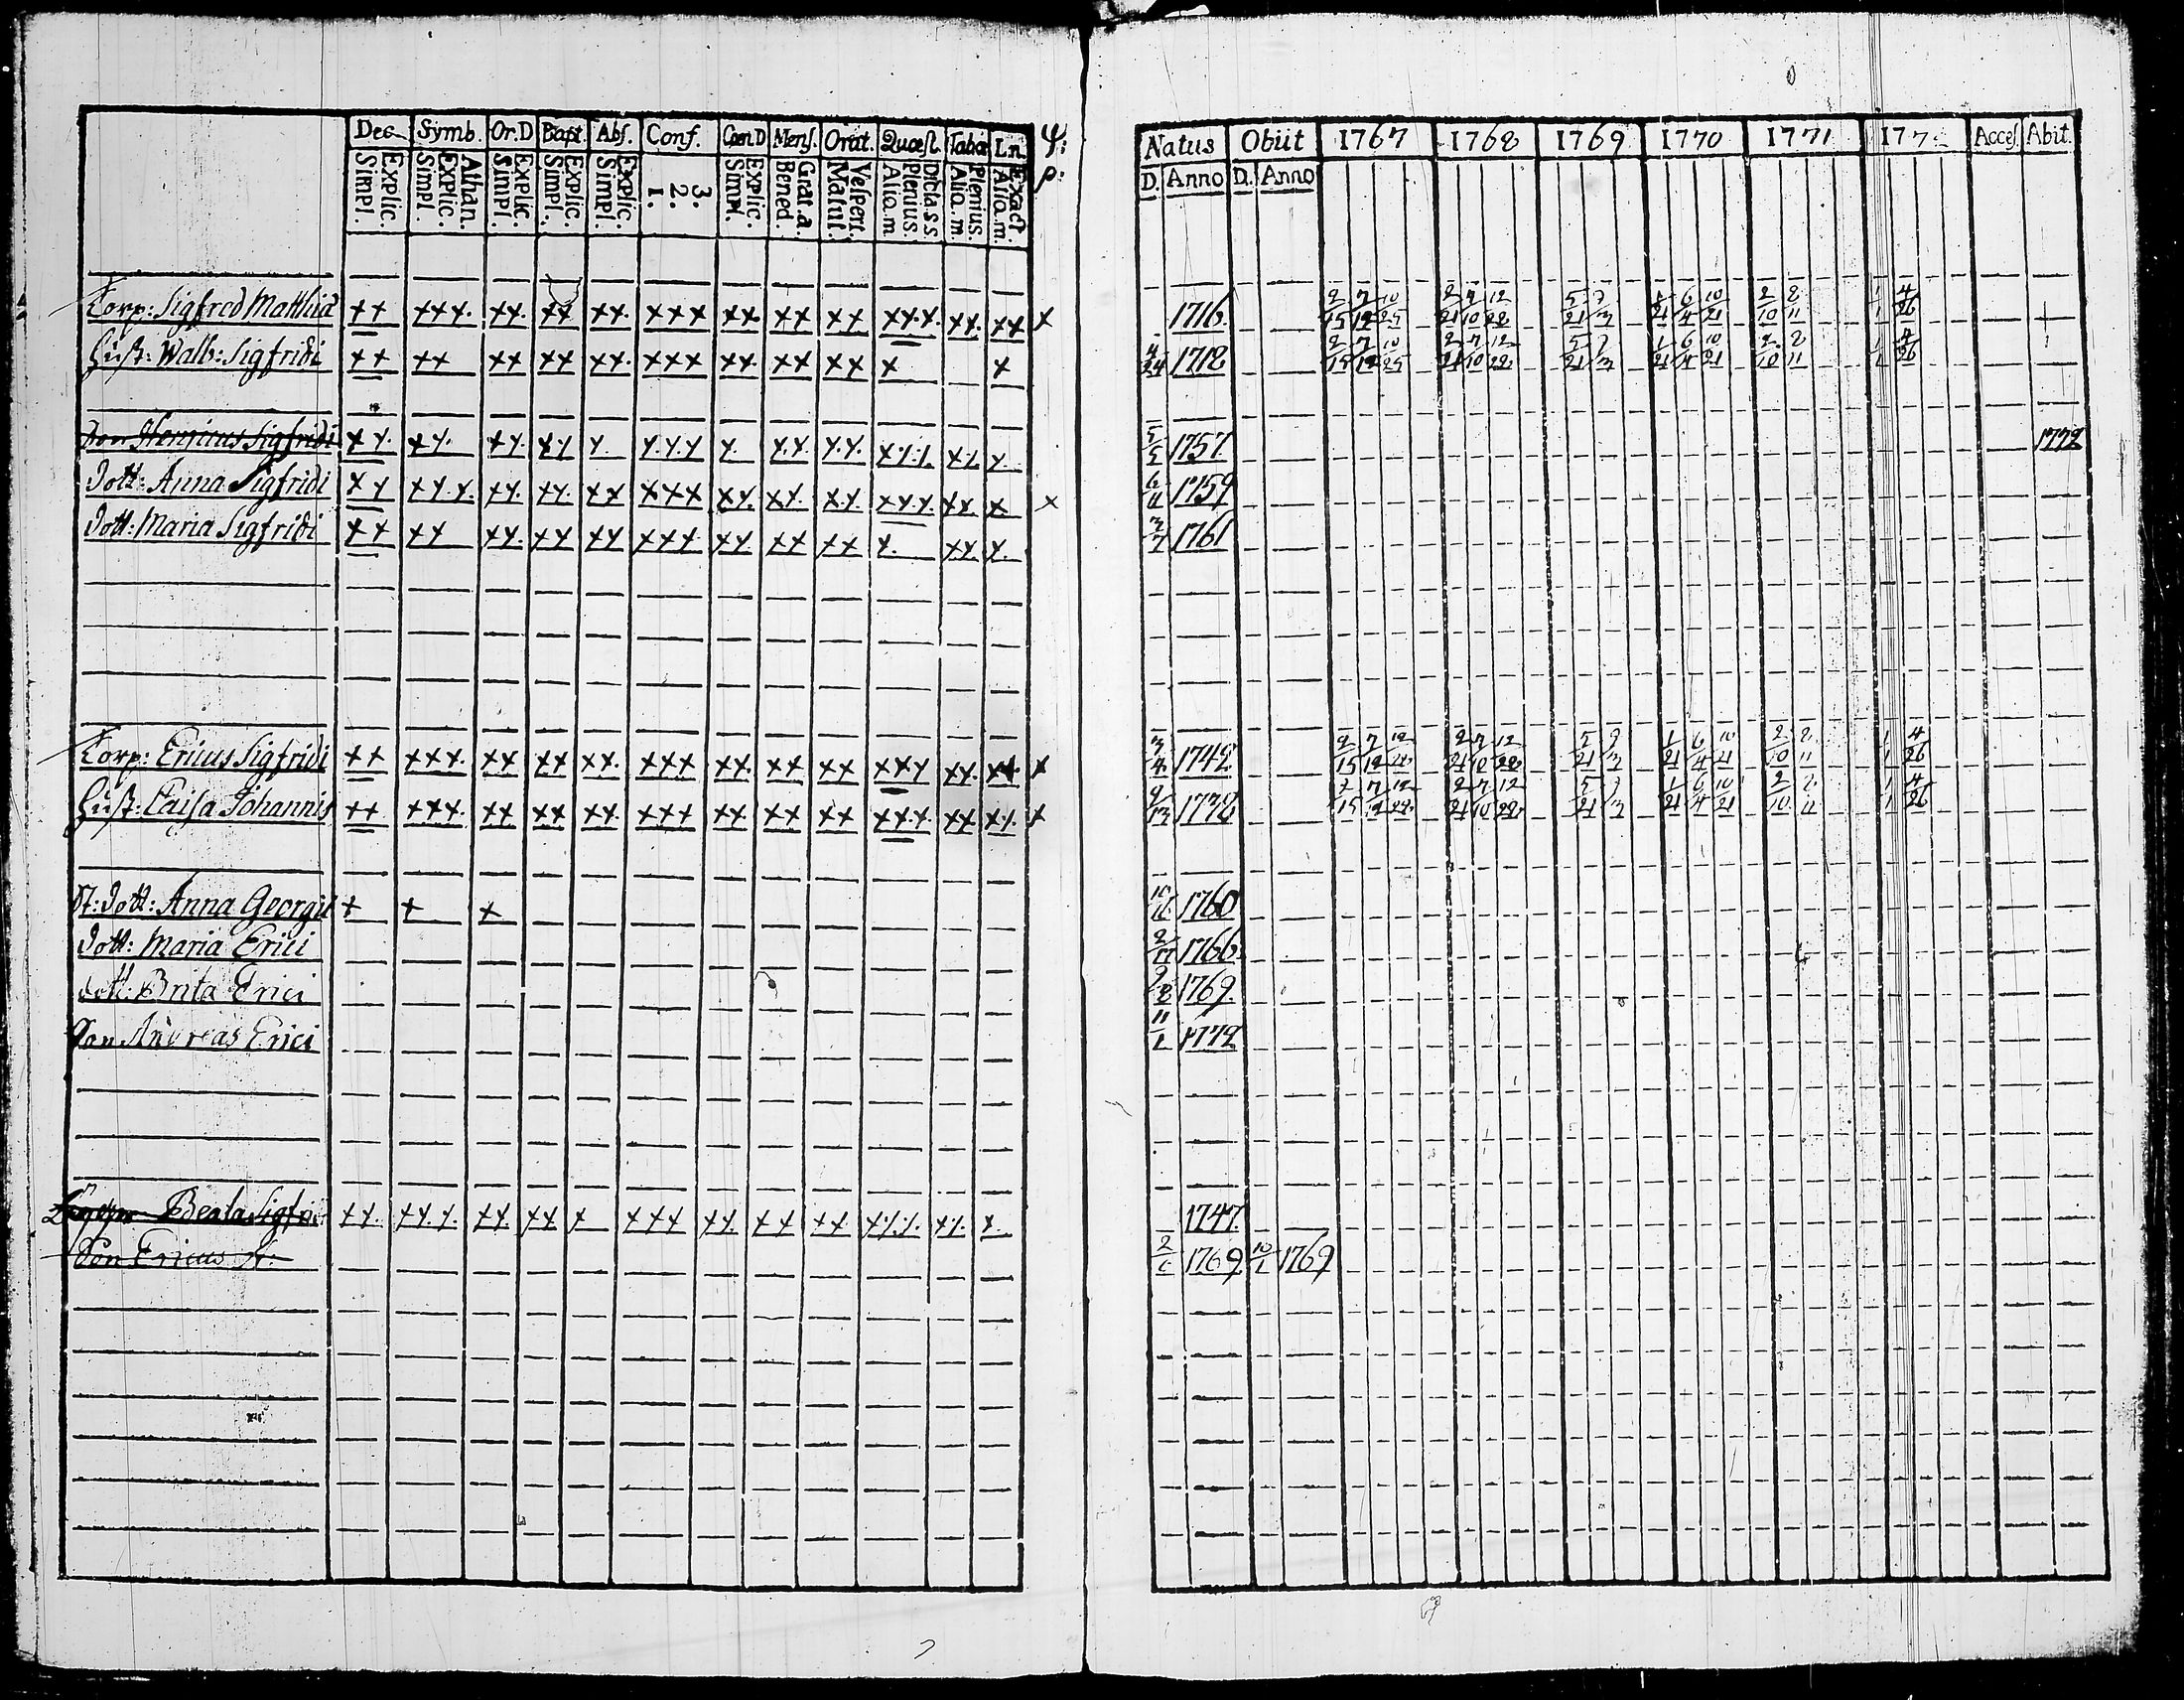 Dec. Symb. Or.D Bapt. Abs. Conf. Cœn.D Mens. Orat. Quæst. Taba Ln. ψ:
Explic. Simpl. Athan. Explic. Simpl. Explic. Simpl. Explic. Simpl. Explic. Simpl. 3. 2. 1. Explic. Simpl. Grat.a. Bened. Vesperi. Matut. Dicta ss. Plenius. Aliq.m Plenius. Aliq.m Exact. Aliq.m. p:
Corp: Sigfred Matthiæ xx xxx. xx. xx xx. xxx xx xx xx xxx. xx. xx x
Hust: Walb: Sigfridi xx xx xx xx xx. xxx xx. xx xx x x
Son Henricus Sigfridi xx. xx. xx. xx x. x.x.x x. x.x. x.x. xxx. xx. x.
Dott: Anna Sigfridi xx xxx. xx. xx. xx xxx xx. xx. xx. xxx. xx. x x
Dott: Maria Sigfridi xx xx xx. xx xx xxx. xx xx xx x. xx x.
Corp: Ericus Sigfridi xx xxx. xx xx xx. xxx xx. xx xx xxx xx. xx x
Hust: Caisa Johannis xx xxx. xx xx xx. xxx xx xx xx xxx xx xx. x
St: Dott: Anna Georgii x x x
Dott: Maria Erici
Dott: Brita Erici
Son Andreas Erici
Beata Sigfri xx. xxx. xx xx x xxx xx. xx xx xxx. xx. x.
Son Ericus
Natus Obiit 1767 1768 1769 1770 1771 177 Acces. Abit.
D. Anno D. Anno
1716. 2/15 7/12 10/25 2/21 7/10 12/28 5/21 7/3 1/21 6/4 10/21 2/10 8/11 1/1 4/26
4/24 1718 2/15 7/12 10/25 2/21 7/10 12/28 5/21 7/3 1/21 6/4 10/21 2/10 8/11 1/1 4/26
1757. 1772
6/11 1759
3/7 1761
3/4 1742 2/15 7/12 12/28 2/21 7/10 12/28 5/21 1/21 6/4 10/21 2/10 8/11 1/1 4/26
2/15 7/12 12/28 2/21 7/10 12/28 5/21 1/21 6/4 10/21 2/10 1/1 4/26
1760
1766.
9/8 1769.
11/1 1772
1747.
1769 10/1 1769